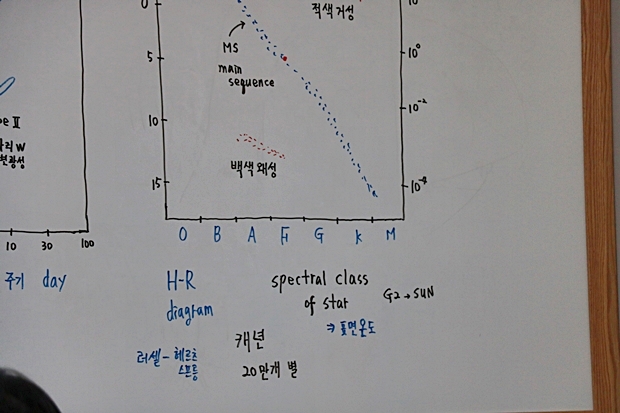 0
적색거성
10
MS
main
sequence
5
10⁰
10
10⁻²
백색왜성
15
pe II
리 W
변광성
O B A F G K M
10 30 100
주기 day
H-R
diagram
spectral class
of star
G2→SUN
⇒ 표면온도
캐년
20만개 별
러셀 - 헤르츠
스프룽